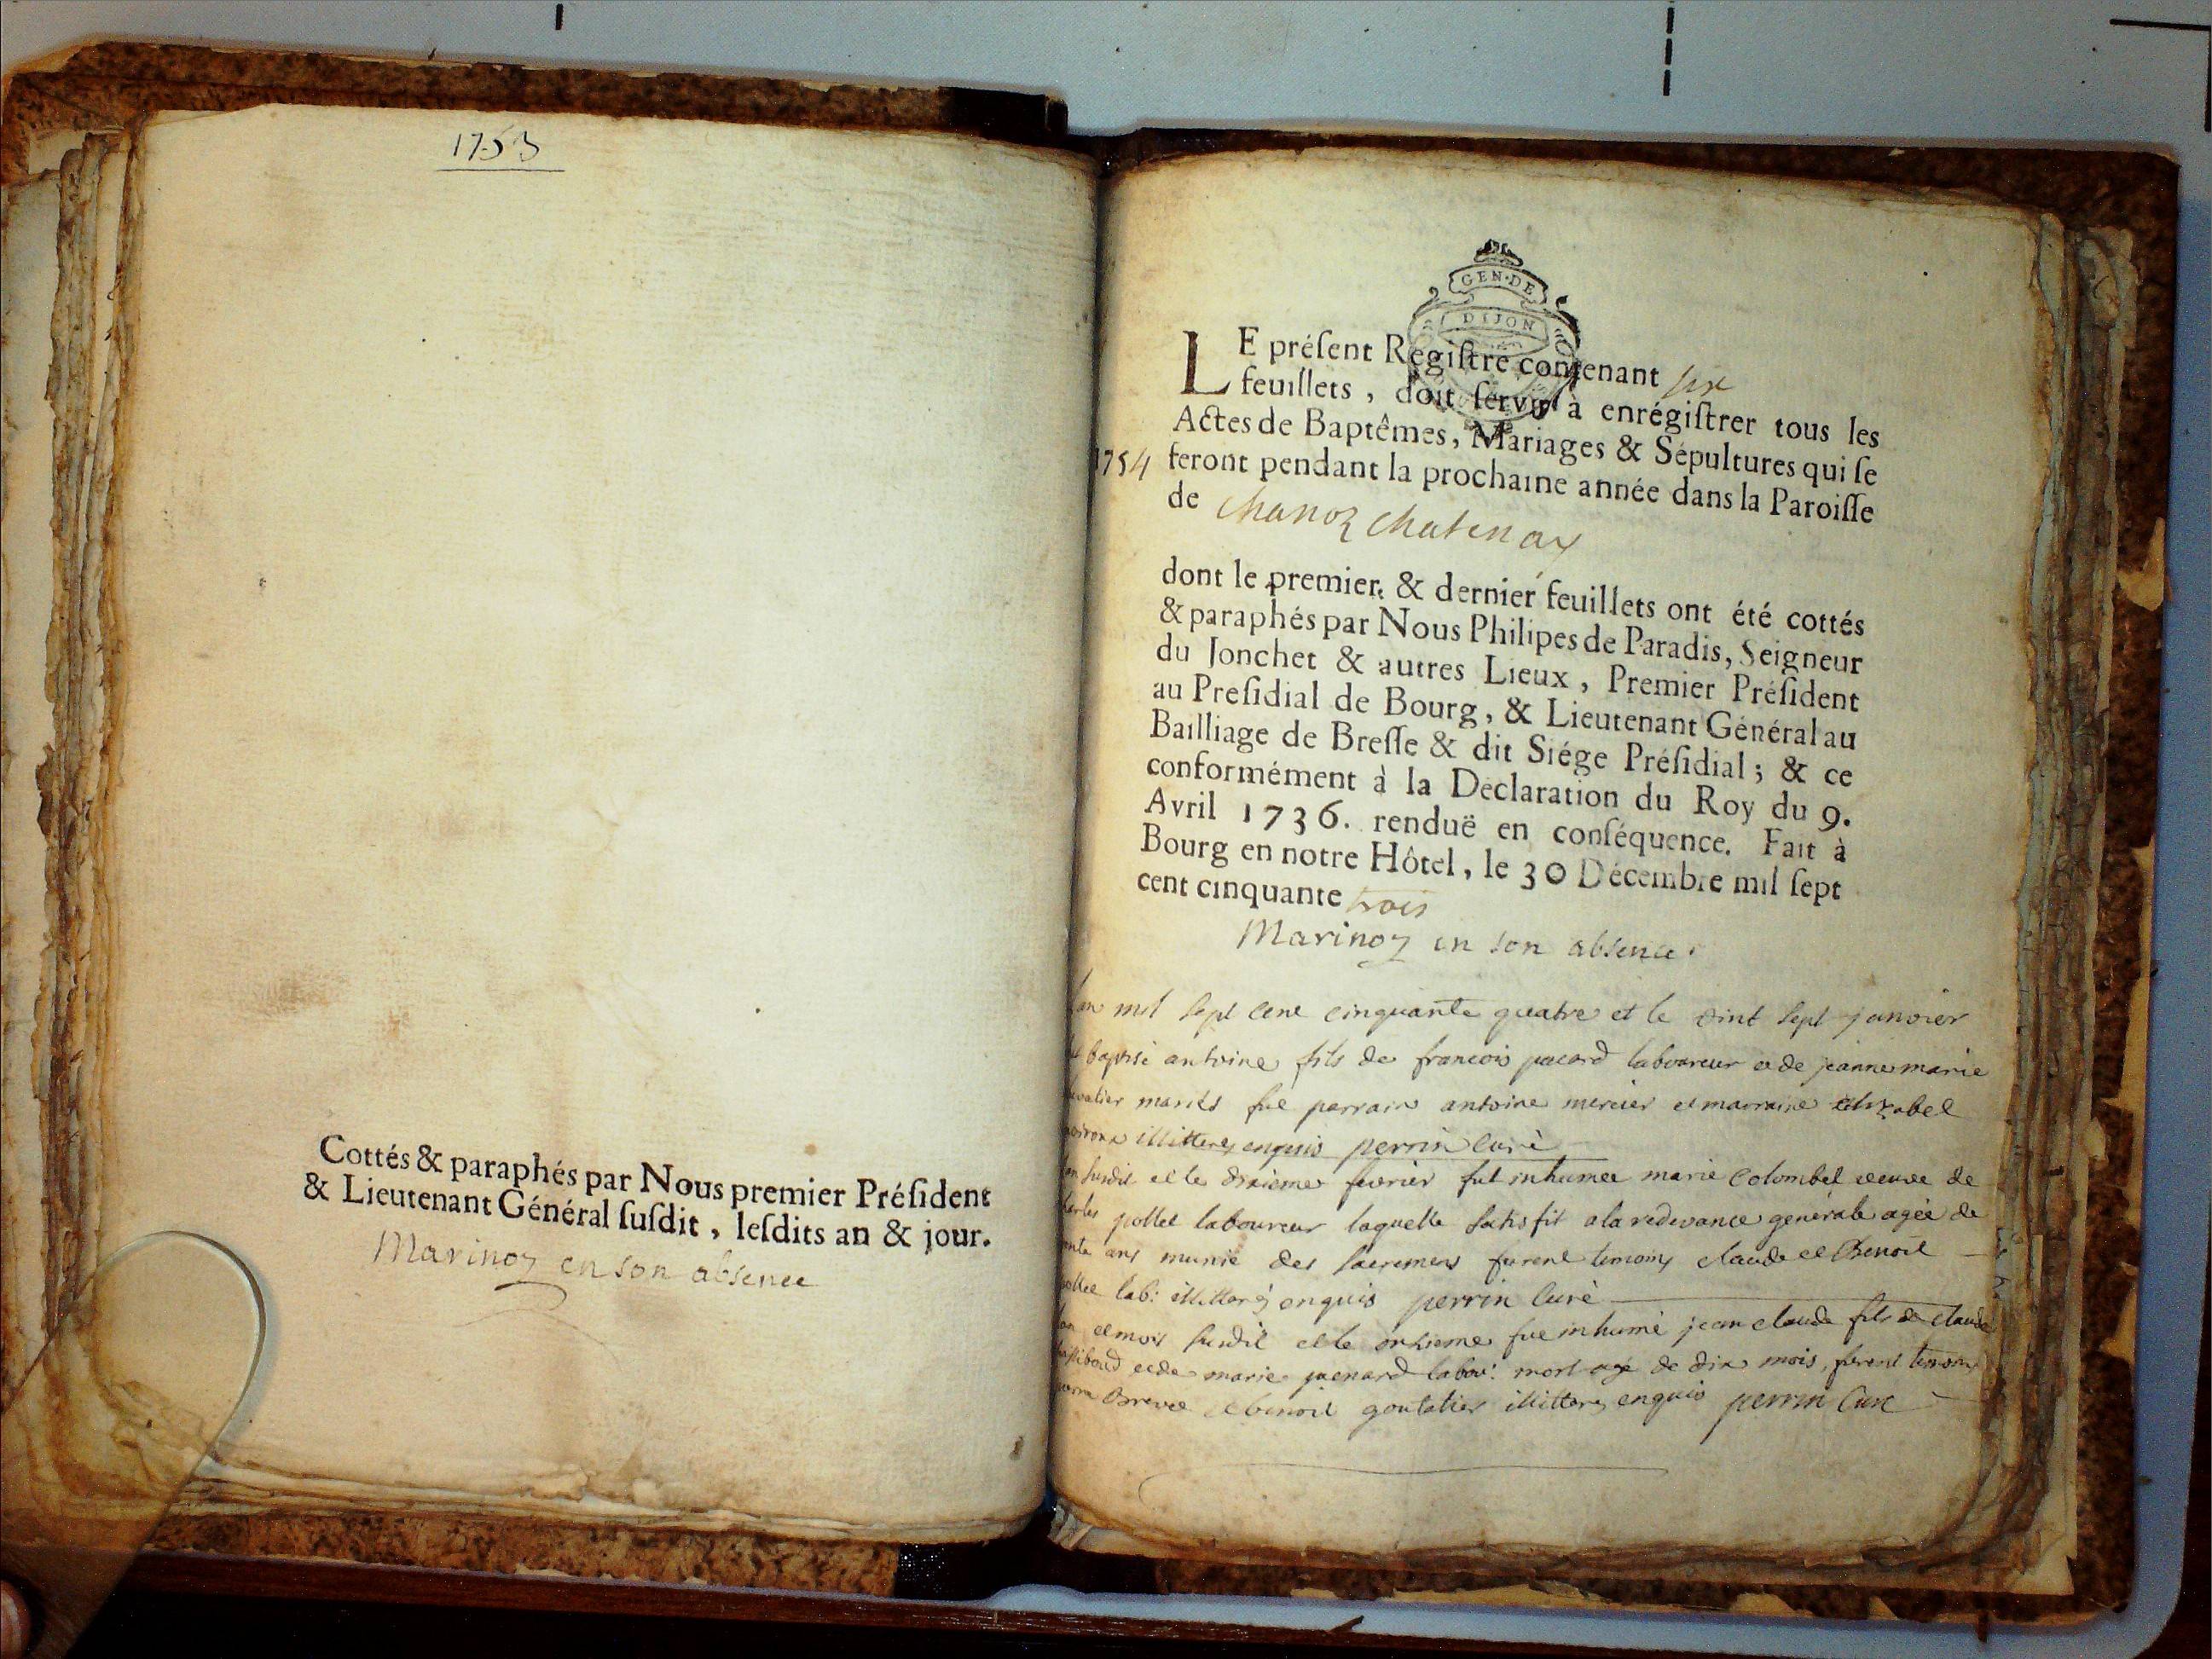 1753
Cottés & paraphés par Nous premier Présidens
& Lieutenant Général susdit, lesdits an & jour.
Marinoz en son absence
GEN·DE
DIJON
LE présent Registre contenant six
feuillets, doit servir à enrégistrer tous les
Actes de Baptêmes, Mariages & Sépultures qui se
1754 feront pendant la prochaine année dans la Paroisse
de Chanoz Chatenay
dont le premier & dernier feuillets ont été cottés
& paraphés par Nous Philipes de Paradis, Seigneur
du Jonchet & autres Lieux, Premier Président
au Presidial de Bourg, & Lieutenant Général au
Bailliage de Bresse & dit Siége Présidial; & ce
conformément à la Declaration du Roy du 9.
Avril 1736. renduë en conséquence. Fait à
Bourg en notre Hôtel, le 30 Décembre mil sept
cent cinquante trois
Marinoz en son absence.
lan mil sept cent cinquante quatre et le vint sept janvier
baptisé antoine fils de francois pacard laboureur et de jeanne marie
mariés fut parrain antoine mercier et marraine elizabel
illitterés enquis perrin curé
an susdit et le dixieme fevrier fut inhumee marie Colombel veuve de
charles pollet laboureur laquelle satisfit a la redevance generale agée de
ans munie des sacremens furent temoins claude et Benoit
pollet lab: illitterés enquis perrin Curé
lan et mois susdit et le onzieme fut inhumé jean claude fils de claude
et de marie penard labou: mort agé de dix mois, furent temoins
Brevet et benoit goutatier illitterés enquis perrin Curé